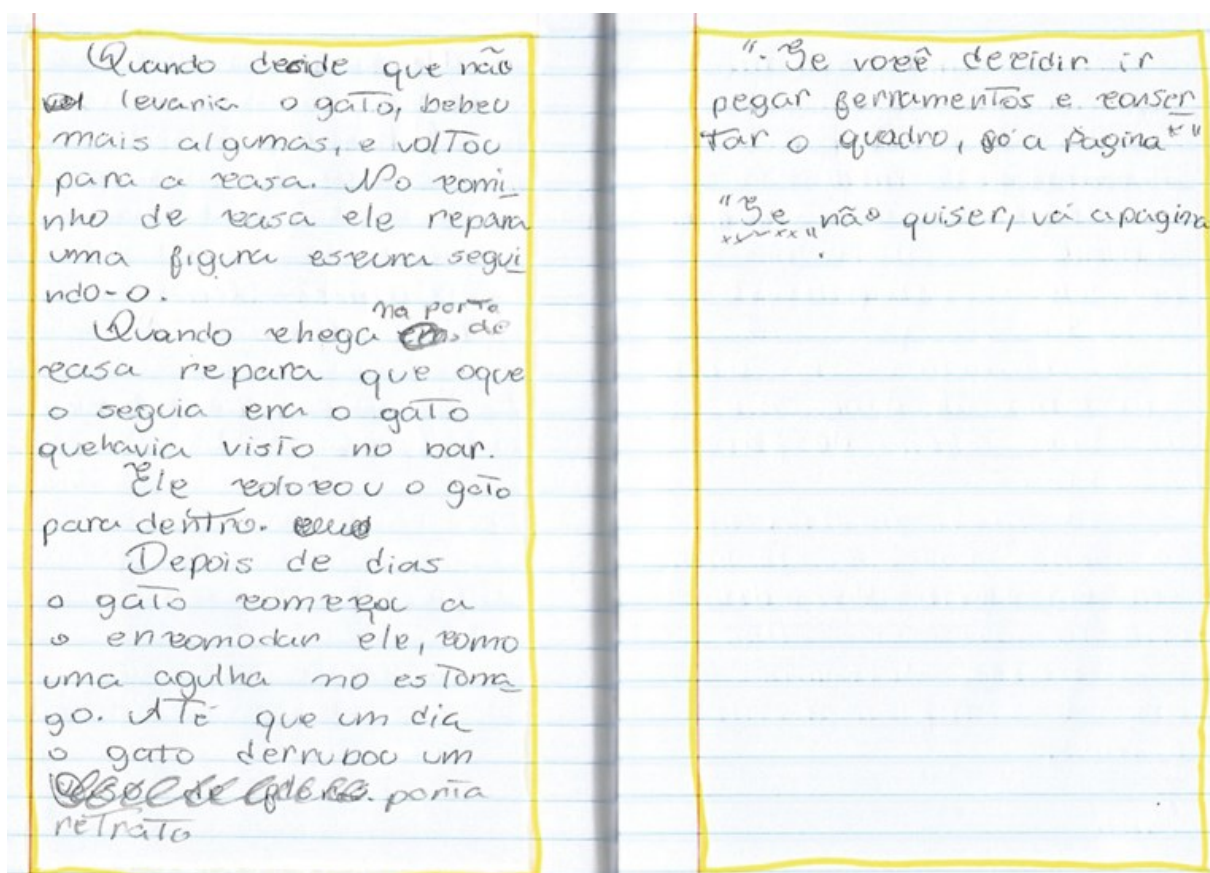 Quando decide que não
levaria o gato, bebeu
mais algumas, e voltou
para a casa. No comi_
nho de casa ele repara
uma figura escura segui_
ndo-o.
na porta
Quando chega de
casa repara que oque
o seguia era o gato
quehavia visto no bar.
Ele colocou o gato
para dentro.
Depois de dias
o gato começou a
o encomodar ele, como
uma agulha no estoma_
go. Até que um dia
o gato derrubou um
porta
retrato
". Se você decidir ir
pegar ferramentos e conser_
tar o quadro, a Pagina
"Se não quiser, vá apagina